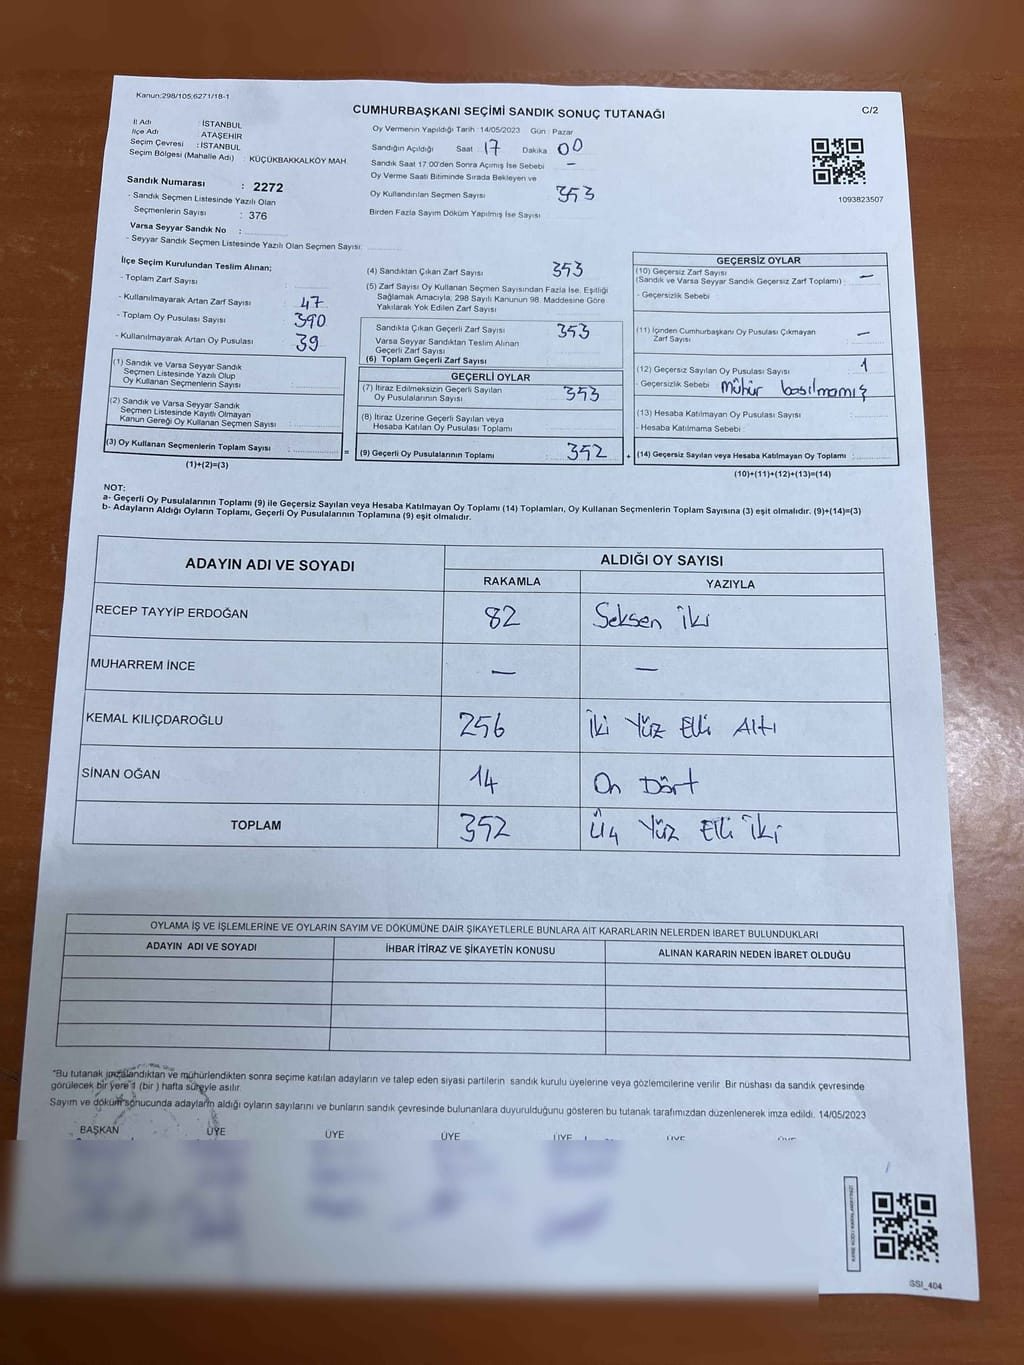 Kanun:298/105,6271/18-1
CUMHURBAŞKANI SEÇİMİ SANDIK SONUÇ TUTANAĞI
C/2
İl Adı : İSTANBUL
İlçe Adı : ATAŞEHİR
Seçim Çevresi : İSTANBUL
Seçim Bölgesi (Mahalle Adı) : KÜÇÜKBAKKALKÖY MAH.
Oy Vermenin Yapıldığı Tarih : 14/05/2023 Gün : Pazar
Sandığın Açıldığı Saat 17 Dakika 00
Sandık Saat 17:00'den Sonra Açılmış İse Sebebi : —
Oy Verme Saati Bitiminde Sırada Bekleyen ve
Oy Kullandırılan Seçmen Sayısı : 353
Birden Fazla Sayım Döküm Yapılmış İse Sayısı
1093823507
Sandık Numarası : 2272
- Sandık Seçmen Listesinde Yazılı Olan
Seçmenlerin Sayısı : 376
Varsa Seyyar Sandık No :
- Seyyar Sandık Seçmen Listesinde Yazılı Olan Seçmen Sayısı:
İlçe Seçim Kurulundan Teslim Alınan;
- Toplam Zarf Sayısı :
- Kullanılmayarak Artan Zarf Sayısı : 47
- Toplam Oy Pusulası Sayısı : 390
- Kullanılmayarak Artan Oy Pusulası : 39
(1) Sandık ve Varsa Seyyar Sandık
Seçmen Listesinde Yazılı Olup
Oy Kullanan Seçmenlerin Sayısı :
(2) Sandık ve Varsa Seyyar Sandık
Seçmen Listesinde Kayıtlı Olmayan
Kanun Gereği Oy Kullanan Seçmen Sayısı :
(3) Oy Kullanan Seçmenlerin Toplam Sayısı :
(1)+(2)=(3)
(4) Sandıktan Çıkan Zarf Sayısı : 353
(5) Zarf Sayısı Oy Kullanan Seçmen Sayısından Fazla İse, Eşitliği
Sağlamak Amacıyla, 298 Sayılı Kanunun 98. Maddesine Göre
Yakılarak Yok Edilen Zarf Sayısı :
Sandıkta Çıkan Geçerli Zarf Sayısı : 353
Varsa Seyyar Sandıktan Teslim Alınan
Geçerli Zarf Sayısı :
(6) Toplam Geçerli Zarf Sayısı :
GEÇERLİ OYLAR
(7) İtiraz Edilmeksizin Geçerli Sayılan
Oy Pusulalarının Sayısı : 353
(8) İtiraz Üzerine Geçerli Sayılan veya
Hesaba Katılan Oy Pusulası Toplamı :
(9) Geçerli Oy Pusulalarının Toplamı : 352
GEÇERSİZ OYLAR
(10) Geçersiz Zarf Sayısı
(Sandık ve Varsa Seyyar Sandık Geçersiz Zarf Toplamı) : —
- Geçersizlik Sebebi :
(11) İçinden Cumhurbaşkanı Oy Pusulası Çıkmayan
Zarf Sayısı : —
(12) Geçersiz Sayılan Oy Pusulası Sayısı : 1
- Geçersizlik Sebebi : mühür basılmamış
(13) Hesaba Katılmayan Oy Pusulası Sayısı :
- Hesaba Katılmama Sebebi :
(14) Geçersiz Sayılan veya Hesaba Katılmayan Oy Toplamı :
(10)+(11)+(12)+(13)=(14)
NOT:
a- Geçerli Oy Pusulalarının Toplamı (9) ile Geçersiz Sayılan veya Hesaba Katılmayan Oy Toplamı (14) Toplamları, Oy Kullanan Seçmenlerin Toplam Sayısına (3) eşit olmalıdır. (9)+(14)=(3)
b- Adayların Aldığı Oyların Toplamı, Geçerli Oy Pusulalarının Toplamına (9) eşit olmalıdır.
ADAYIN ADI VE SOYADI
ALDIĞI OY SAYISI
RAKAMLA YAZIYLA
RECEP TAYYİP ERDOĞAN 82 Seksen İki
MUHARREM İNCE — —
KEMAL KILIÇDAROĞLU 256 İki Yüz Elli Altı
SİNAN OĞAN 14 On Dört
TOPLAM 352 Üç Yüz Elli İki
OYLAMA İŞ VE İŞLEMLERİNE VE OYLARIN SAYIM VE DÖKÜMÜNE DAİR ŞİKAYETLERLE BUNLARA AİT KARARLARIN NELERDEN İBARET BULUNDUKLARI
ADAYIN ADI VE SOYADI İHBAR İTİRAZ VE ŞİKAYETİN KONUSU ALINAN KARARIN NEDEN İBARET OLDUĞU
"Bu tutanak imzalandıktan ve mühürlendikten sonra seçime katılan adayların ve talep eden siyasi partilerin sandık kurulu üyelerine veya gözlemcilerine verilir. Bir nüshası da sandık çevresinde
görülecek bir yere 1 (bir) hafta süreyle asılır.
Sayım ve döküm sonucunda adayların aldığı oyların sayılarını ve bunların sandık çevresinde bulunanlara duyurulduğunu gösteren bu tutanak tarafımızdan düzenlenerek imza edildi. 14/05/2023
BAŞKAN ÜYE ÜYE ÜYE ÜYE ÜYE ÜYE
SSI_404